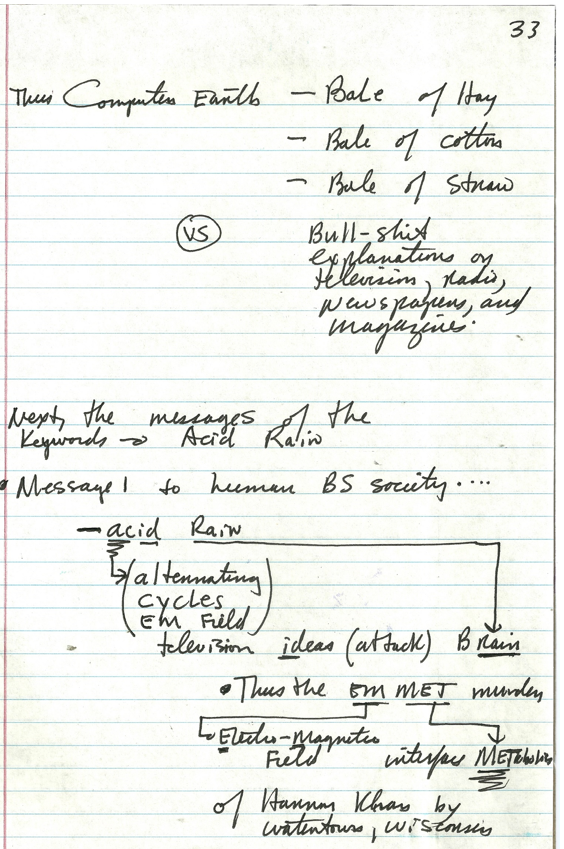 33
Thus Computer Earth — Bale of Hay
— Bale of cotton
— Bale of straw
VS
Bull-shit
explanations on
television, radio,
newspapers, and
magazines.
Next, the messages of the
Keywords → Acid Rain
• Message 1 to human BS society....
— acid Rain
(alternating
cycles
EM Field)
television ideas (attack) BRain
• Thus the EM MET murder
Electro-Magnetic
Field
interface METabolism
of Hannan by
watertown, wisconsin